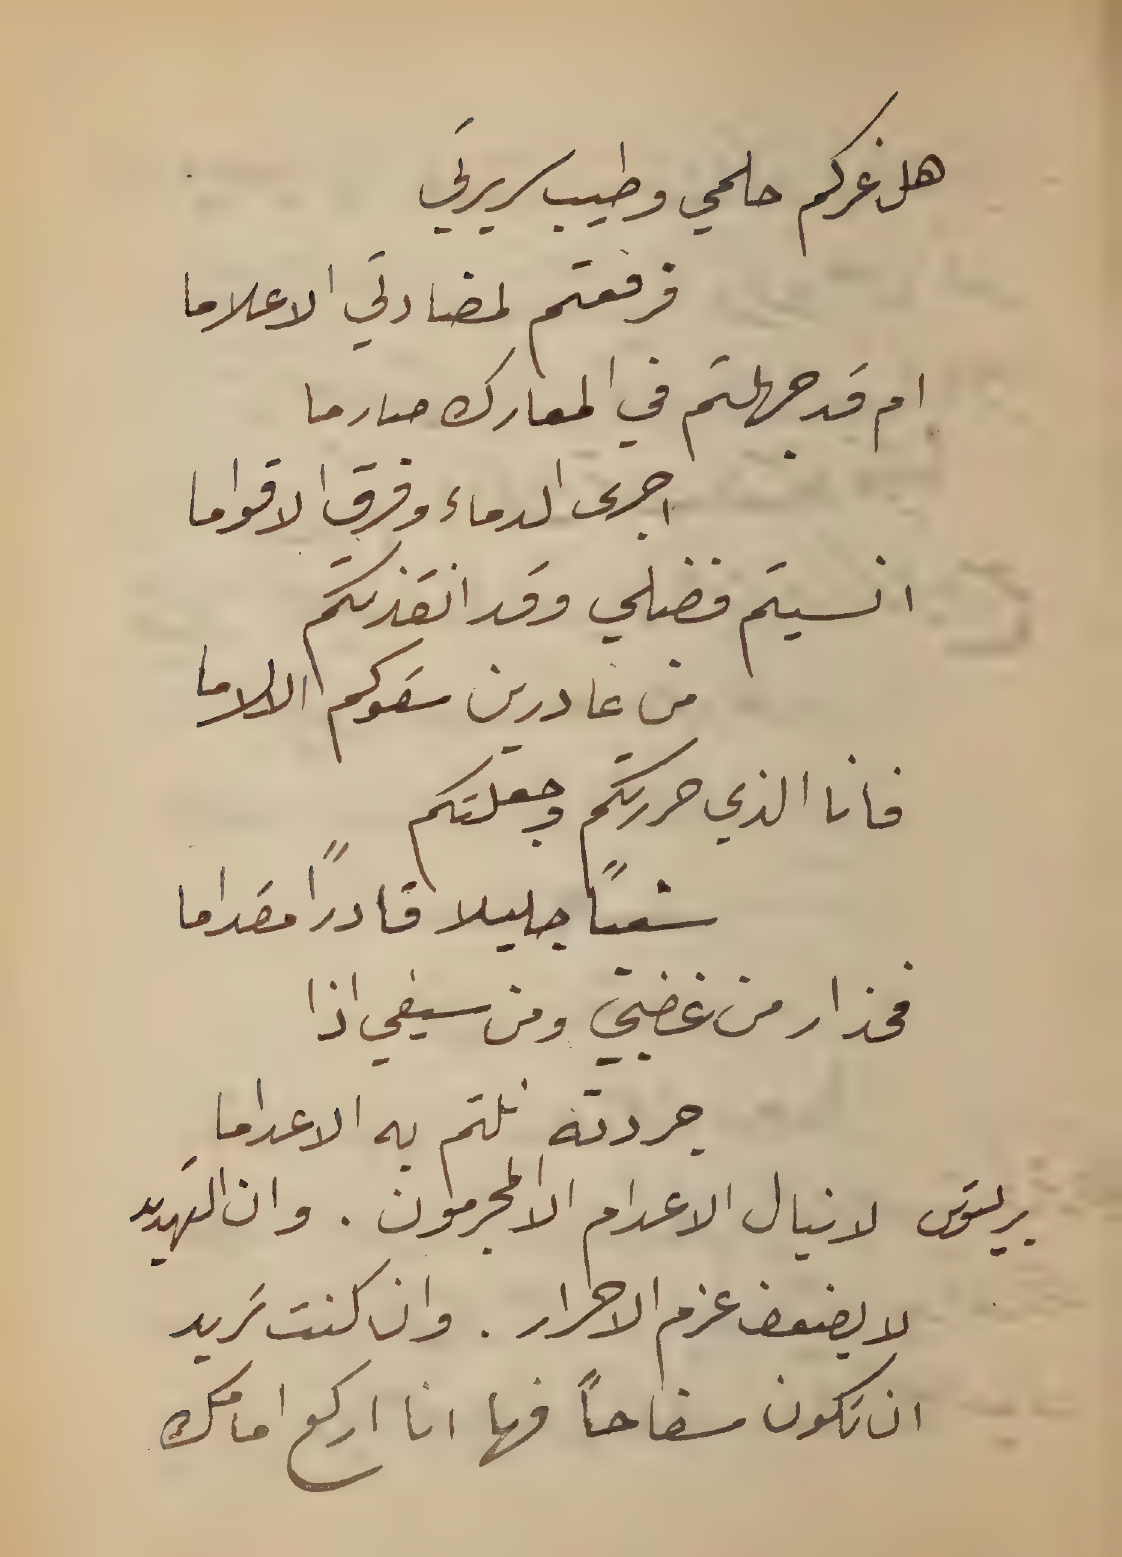 هل غركم حلمي وطيب سريرتي
فرفعتم لمضادتي الاعلاما
ام قد جهلتم في المعارك صارما
اجرى الدماء وفرق الاقواما
انسيتم فضلي وقد انقذتكم
من غادرين سقوكم الالاما
فانا الذي حررتكم وجعلتكم
شعباً جليلا قادراً مقداما
فحذار من غضبتي ومن سيفي اذا
جردته نلتم به الاعداما
بريتوس لا ينال الاعدام الا المجرمون . وان التهديد
لا يضعف عزم الاحرار . وان كنت تريد
ان تكون سفاحاً فها انا اركع امامك